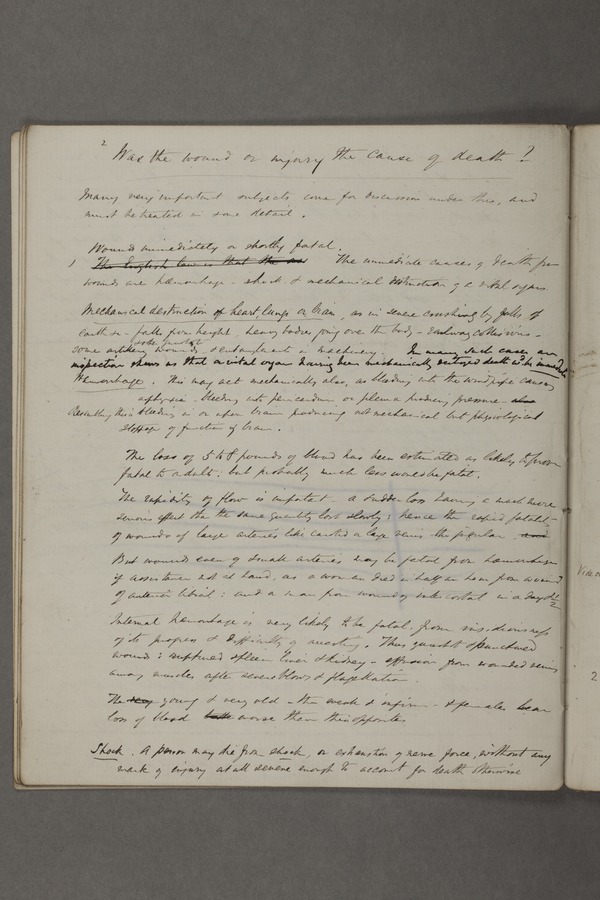 2
Was the wound or injury the cause of death?
Many very important subjects come for discussion under this, and
must be treated in some detail.
Wounds immediately or shortly fatal.
1 The English law is that the The immediate causes of death from
wounds are hæmorrhage - shock & mechanical destruction of a vital organ.
Mechanical destruction of heart, lungs or brain, as in severe crushing by falls of
earth &c - falls from height, heavy bodies going over the body - Railway collisions -
some gunshot
some artillery wounds, & entanglement in machinery. In many such cases an
inspection shews us that a vital organ having been mechanically destroyed death must be immediate
Hemorrhage. This may act mechanically also, as bleeding into the windpipe causing
asphyxia - bleeding into pericardium or pleura producing pressure - also
Resembling this is bleeding in or upon brain producing not mechanical but physiological
stoppage of function of brain.
The loss of 5 to 8 pounds of blood has been estimated as likely to prove
fatal to adult: but probably much less would be fatal.
The rapidity of flow is important. A sudden loss having a much more
serious effect than the same quantity lost slowly: hence the rapid fatality
of wounds of large arteries like carotid or large veins the jugular
But wounds even of small arteries may be fatal from hæmorrhage
if assistance not at hand, as a woman died in half an hour from a wound
of anterior tibial: and a man from wound of intercostal in a day
Internal hemorrhage is very likely to be fatal from insidiousness
of its progress & difficulty of arresting. Thus gunshot & punctured
wounds: ruptured spleen liver & kidney - effusion from wounded veins
among muscles after severe blows & flagellation.
The very young & very old - the weak & infirm - & females bear
loss of blood worse than their opposites
Shock. A person may die from shock, or exhaustion of nerve force, without any
mark of injury at all severe enough to account for death otherwise
Vide
2